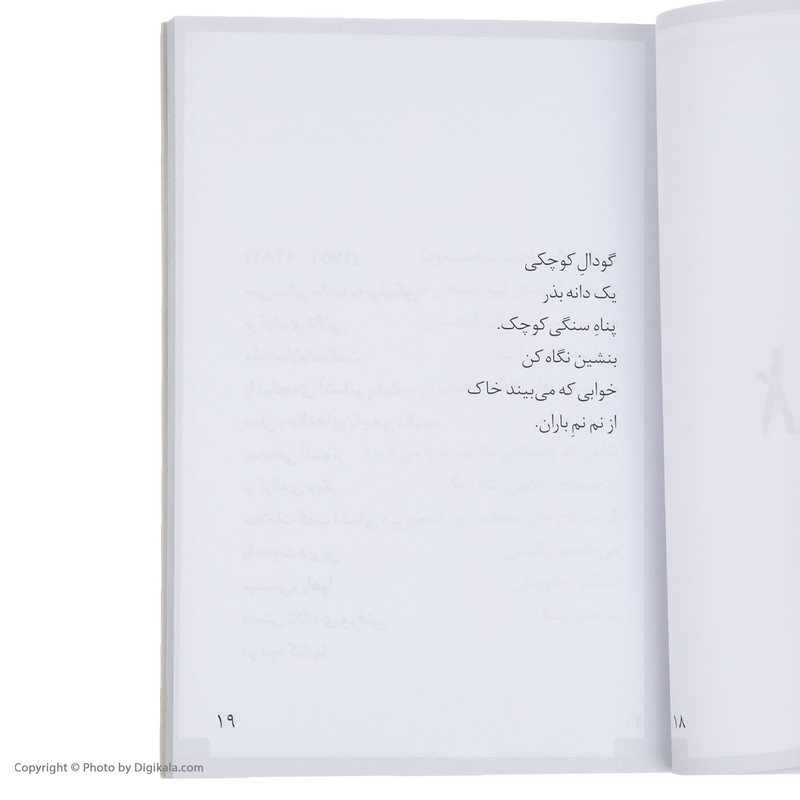 گودالِ کوچکی
یک دانه بذر
پناهِ سنگی کوچک.
بنشین نگاه کن
خوابی که می‌بیند خاک
از نم نمِ باران.
۱۹
۱۸
Copyright © Photo by Digikala.com